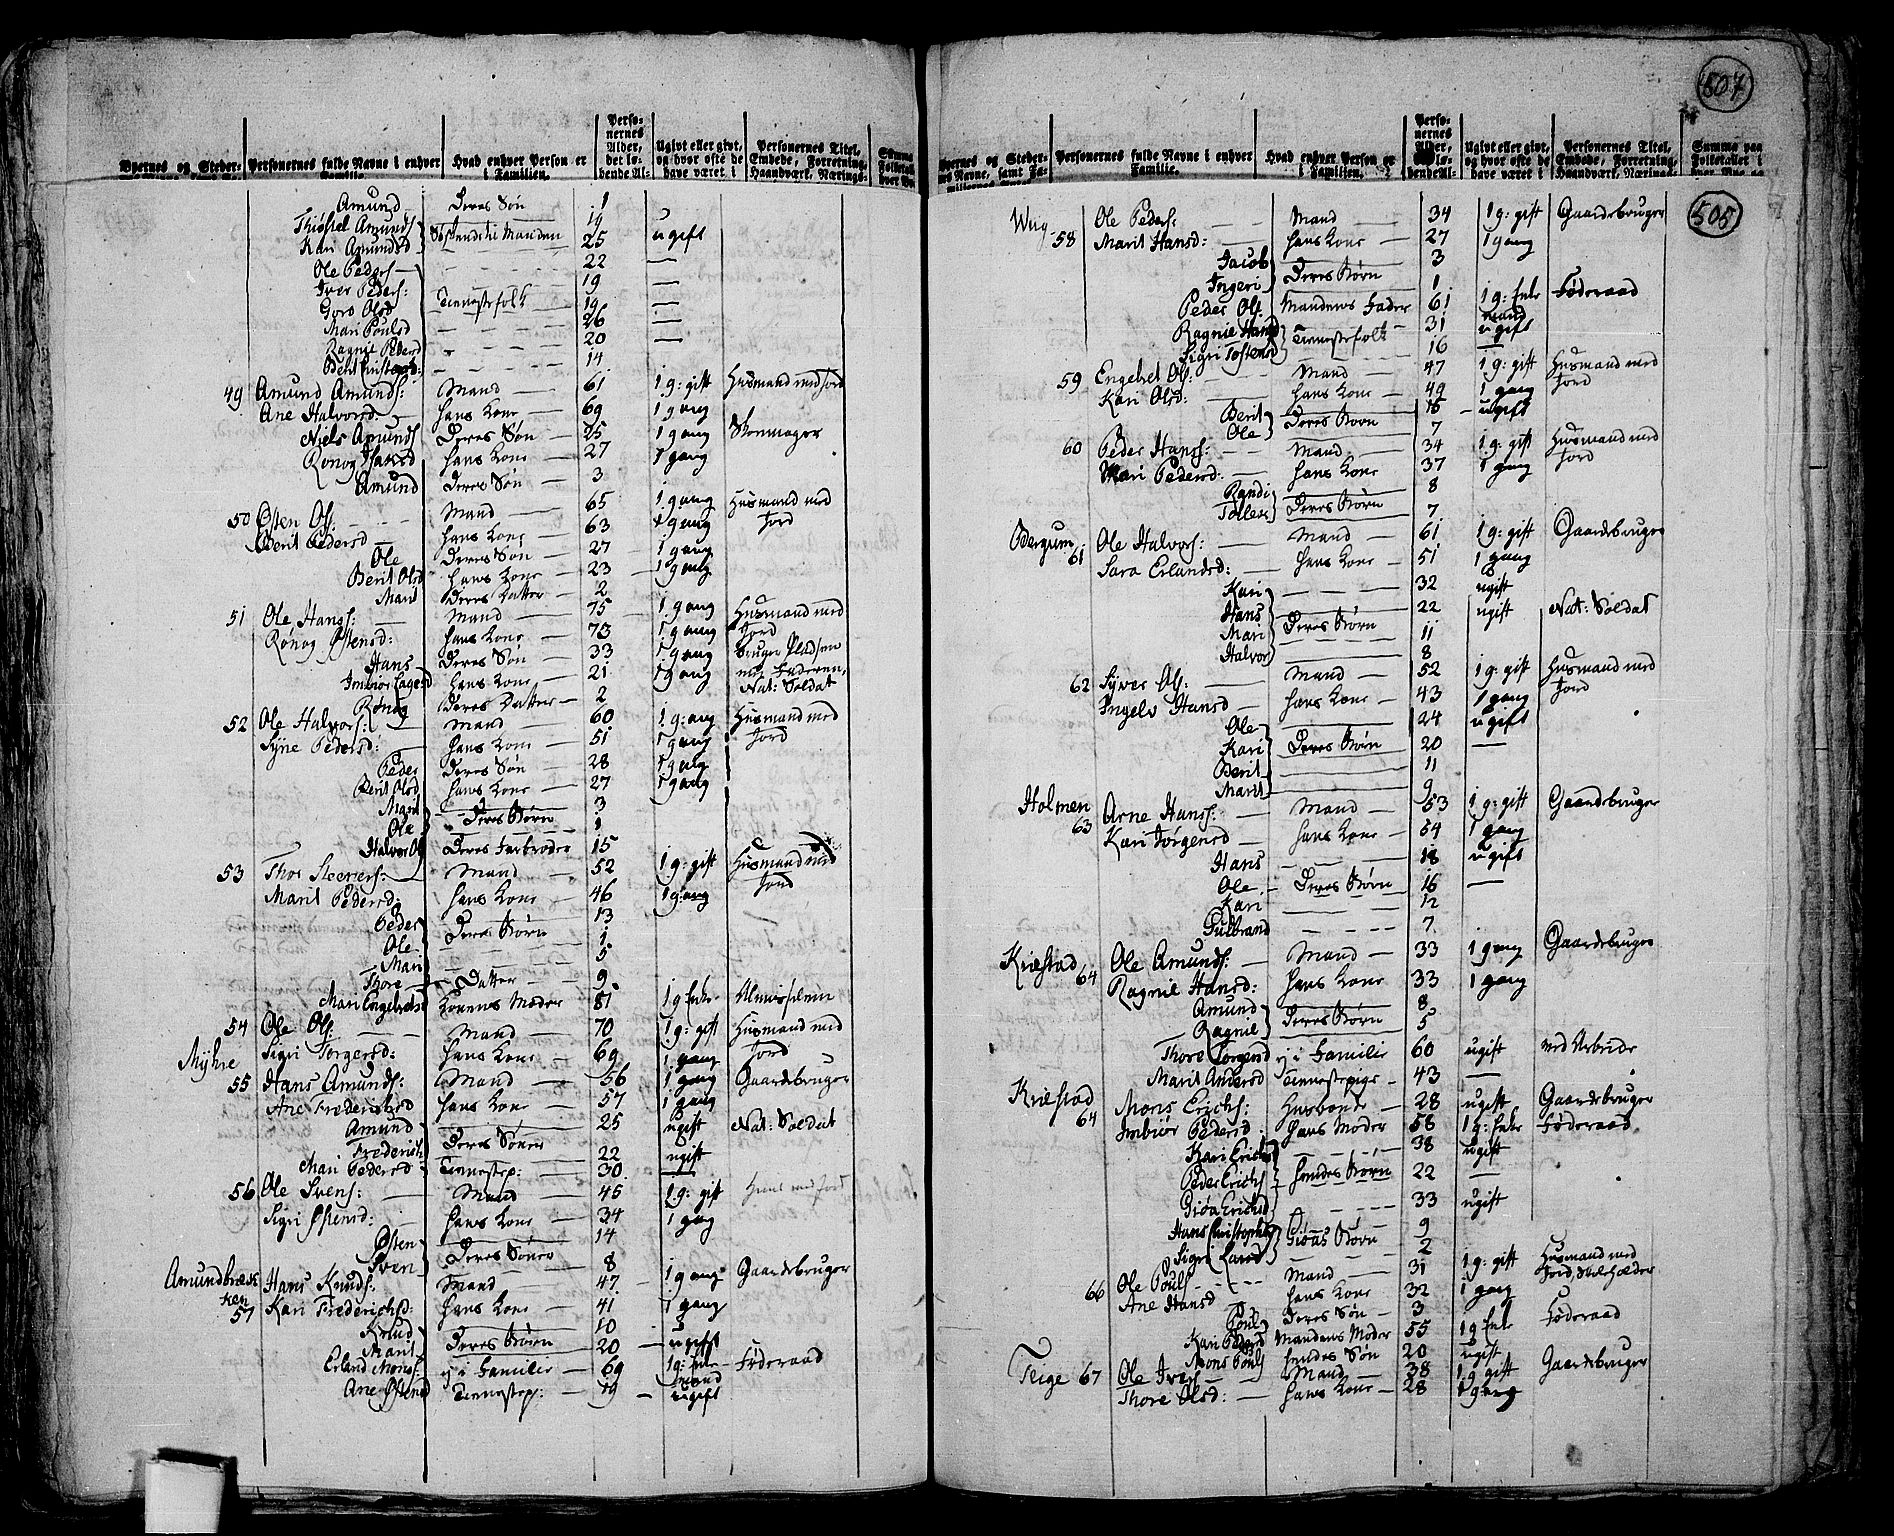 807
505
Byernes og Steder- Personernes fulde Navne i enhver Familie. Hvad enhver Person er i Familien. Personernes Alder, det løbende Al- Ugivt eller givt, og hvor ofte de have været i Personernes Titel, Embede, Forretning, Haandværk, Nærings- Summa
Amund Deres Søn 1
Thostel Amunds 19
Kari Amundsd Søskende til Manden 25 ugift
Ole Peders 22 —
Iver Peders: 19 —
Goro Olsd Tiennestefolk 19 —
Mari Poulsd 26 —
Ragnil Pedersd 20 —
14
49 Amund Amunds: Mand 61 1 g: gift Husmand med Jord
Ane Halvorsd hans Kone 69 1 gang
Niels Amunds Deres Søn 25 1 gang Skomager
Ronog hans Kone 27 1 gang
Amund Deres Søn 3
50 Østen Ols: Mand 65 1 gang Husmand med Jord
Berit Pedersd hans Kone 63 1 gang
Ole Deres Søn 27 1 gang
Berit Olsd hans Kone 23 1 gang
Marit Deres Datter 2
51 Ole Hans: Mand 75 1 gang Husmand med Jord
Rønog Østensd: hans Kone 73 1 gang
Hans Deres Søn 33 1 gang bruger Pladsen med Faderen, Nat: Soldat
Imbiør hans Kone 21 1 gang
Rønog Deres Datter 2
52 Ole Halvors: Mand 60 1 g:ang Husmand med Jord
Syne Pedersd: hans Kone 51 1 gang
Peder Deres Søn 28 1 gang
Berit Olsd hans Kone 27 1 gang
Marit 3
Ole Deres Børn 1
Halvor Ols Deres Farbroder 15
53 Thor Mand 52 1 g: gift Husmand med Jord
Marit Pedersd: hans Kone 46 1 gang
Peder 13
Ole Deres Børn 1
Mari 5
Thore Datter 9
Mari Engebretsd Konens Moder 81 1 g Enke Almisselem
54 Ole Ols: Mand 70 1 g: gift Husmand med Jord
Sigri Torgersd: hans Kone 69 1 gang
Myhre
55 Hans Amunds: Mand 56 1 gang Gaardebruger
Ane Frederichsd hans Kone 57 1 gang
Amund 25 ugift Nat: Soldat
Frederich Deres Sønner 22 ugift
Mari Pedersd Tiennestep: 30 —
56 Ole Svens: Mand 45 1 g: gift Huusm med Jord
Sigri Østensd: hans Kone 34 1 gang
Østen 14
Sven Deres Sønner 8
Amundbræk ken
57 Hans Knuds: Mand 47 1 gang Gaardebruger
Kari Frederichsd: hans Kone 41 1 gang
Knud 10
Marit Deres Børn 20 ugift
Erland Mons: ej i Familie 69 1 g: Enkemand Føderaad
Ane Østensd Tiennestep: 19 ugift
Byernes og Stedernes Navne, samt Familiernes Personernes fulde Navne i enhver Familie. Hvad enhver Person er i Familien. Personernes Alder, det løbende Al- Ugivt eller givt, og hvor ofte de have været i Personernes Titel, Embede, Forretning, Haandværk, Nærings- Summa paa Folketallet i hver Bye og
Wiig 58 Ole Peders: Mand 34 1 g: gift Gaardebruger
Marit Hansd: hans Kone 27 1 gang
Jacob 3
Ingeri Deres Børn 1
Peder Ols: Mandens Fader 61 1 g: Enkemand Føderaad
Ragnil Hansd Tiennestefolk 31 ugift
Sigri Tostensd 16 —
59 Engebret Ols: Mand 47 1 g: gift Husmand med Jord
Kari Olsd: hans Kone 49 1 gang
Berit 15 ugift
Ole Deres Børn 7
60 Peder Hans: Mand 34 1 g: gift Husmand med Jord
Mari Pedersd: hans Kone 37 1 gang
Randi 8
Tollest Deres Børn 7
Bergum 61 Ole Halvors: Mand 61 1 g: gift Gaardebruger
Sara Erlandsd: hans Kone 51 1 gang
Kari 32 ugift
Hans 22 ugift Nat: Soldat
Mari Deres Børn 11
Halvor 8
62 Syver Ols: Mand 52 1 g: gift Husmand med Jord
Ingelv Hansd hans Kone 43 1 gang
Ole 24 ugift
Kari Deres Børn 20 —
Berit 11
Marit 9
Holmen 63 Arne Hans: Mand 53 1 g: gift Gaardebruger
Kari Jørgensd hans Kone 54 1 gang
Hans 18 ugift
Ole Deres Børn 16 —
Kari 12
Gulbrand 7
Kriestad 64 Ole Amunds: Mand 33 1 gang Gaardebruger
Ragnil Hansd: hans Kone 33 1 gang
Amund 8
Ragnil Deres Børn 5
Thore Torgersd ej i Familie 60 ugift ved Arbeide
Marit Andersd Tiennestepige 43 —
Kriestad 64 Mons Erichs: Husbonde 28 ugift Gaardebruger
Imbiør Pedersd: hans Moder 58 1 g: Enke Føderaad
Kari Erichsd 38 ugift
Peder Erichs hendes Børn 22 —
Giøa Erichsd 33 ugift
Hans Christophers Giøas Børn 9
Sigri Larsd 2
66 Ole Pouls Mand 31 1 g: gift Husmand med Jord, Skoleholder
Ane Hansd hans Kone 32 1 gang
Poul Deres Søn 3
Kari Pedersd Mandens Moder 55 1 g Enke Føderaad
Mons Pouls hendes Søn 20 ugift
Teige 67 Ole Ivers Mand 38 1 g gift Gaardebruger
Thore Olsd: hans Kone 28 1 gang